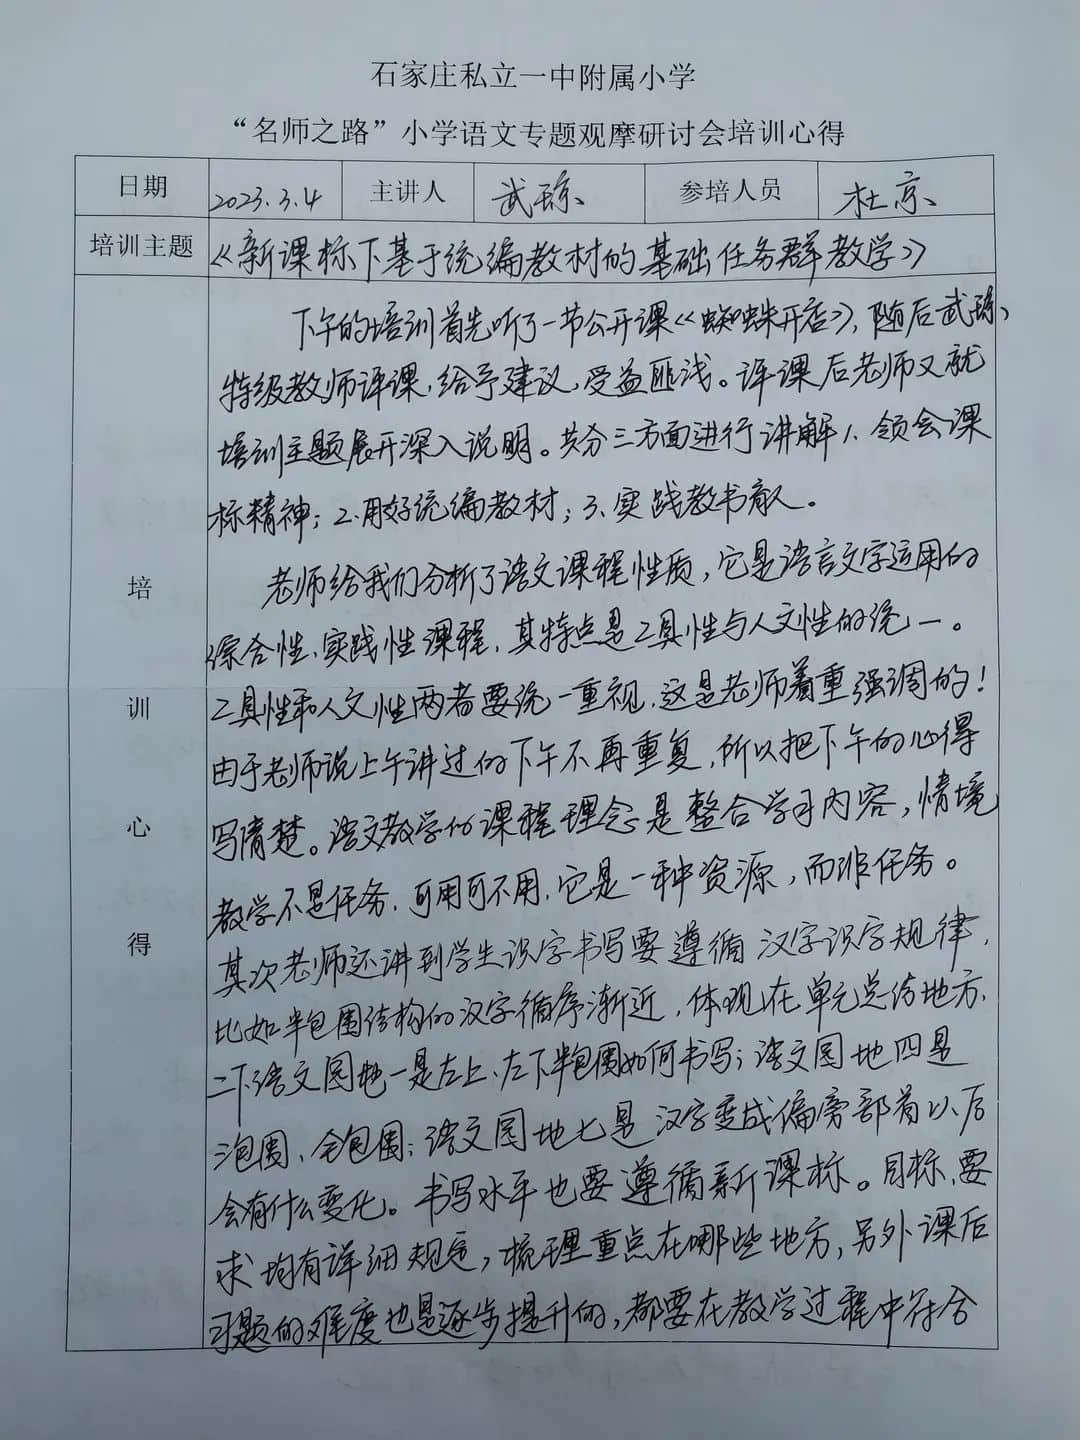 石家庄私立一中附属小学
“名师之路”小学语文专题观摩研讨会培训心得
日期 2023.3.4 主讲人 武琼 参培人员 杜京
培训主题 《新课标下基于统编教材的基础任务群教学》
培训心得
下午的培训首先听了一节公开课《蜘蛛开店》,随后武琼
特级教师评课,给予建议,受益匪浅。评课后老师又就
培训主题展开深入说明。共分三方面进行讲解1、领会课
标精神;2.用好统编教材;3、实践教书育人。
老师给我们分析了语文课程性质,它是语言文字运用的
综合性、实践性课程,其特点是工具性与人文性的统一。
工具性和人文性两者要统一重视,这是老师着重强调的!
由于老师说上午讲过的下午不再重复,所以把下午的心得
写清楚。语文教学的课程理念是整合学习内容,情境
教学不是任务,可用可不用,它是一种资源,而非任务。
其次老师还讲到学生识字书写要遵循汉字识字规律,
比如半包围结构的汉字循序渐近,体现在单元总结地方,
二下语文园地一是左上、左下半包围如何书写;语文园地四是
包围、全包围;语文园地七是汉字变成偏旁部首以后
会有什么变化。书写水平也要遵循新课标。目标、要
求均有详细规定,梳理重点在哪些地方,另外课后
习题的难度也是逐步提升的,都要在教学过程中符合